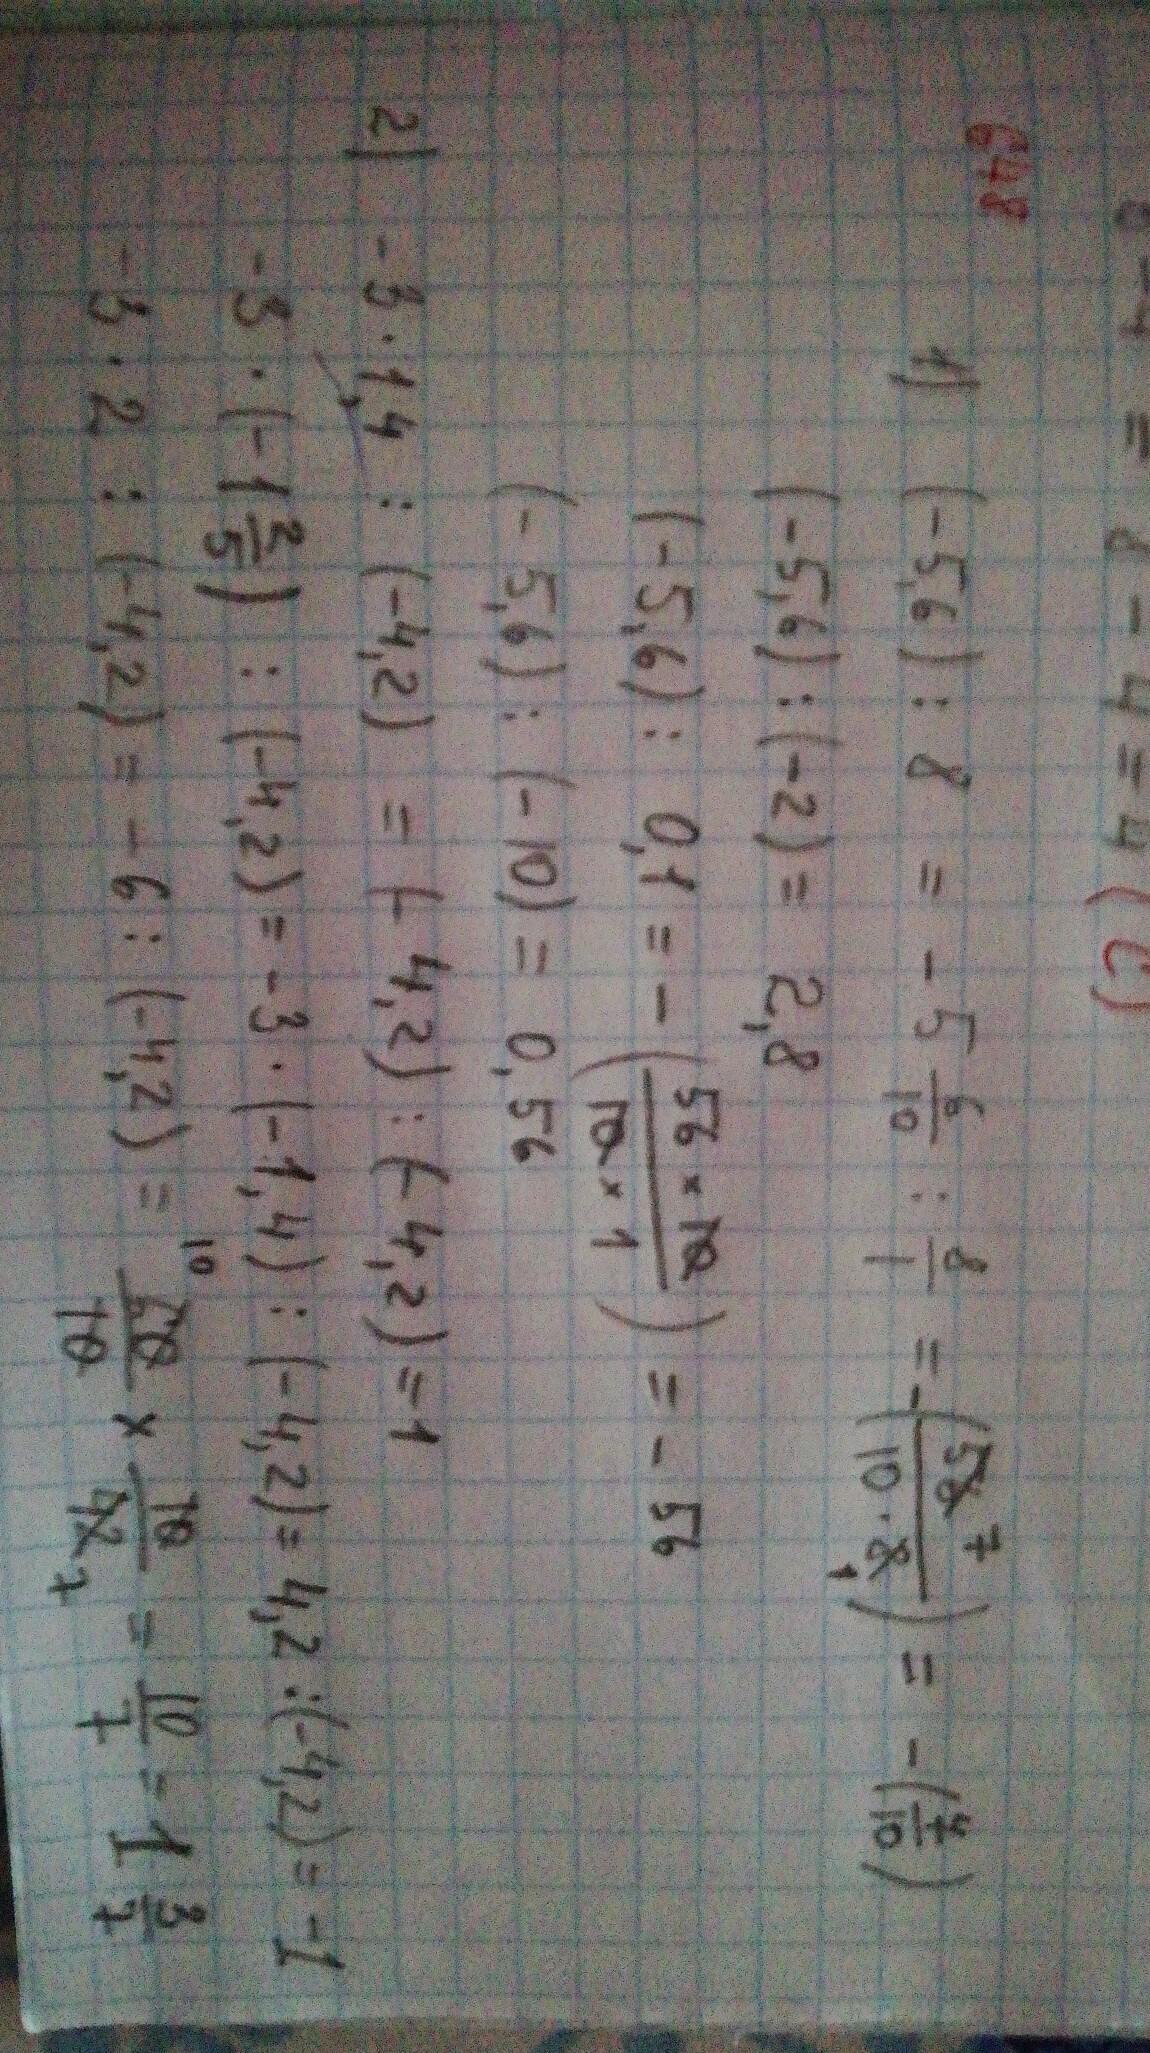 8 - 4 = 4 (C)
648
1) (-5,6) : 8 = -5 6/10 : 8/1 = -(56 7/10·8 1) = -(7/10)
(-5,6) : (-2) = 2,8
(-5,6) : 0,1 = -(56 × 10/10 × 1) = - 56
(-5,6) : (-10) = 0,56
2) -3·1,4 : (-4,2) = (-4,2) : (-4,2) = 1
-3 · (-1 2/5) : (-4,2) = -3 · (-1,4) : (-4,2) = 4,2 : (-4,2) = -1
-3 · 2 : (-4,2) = -6 : (-4,2) = 10 60/10 × 10/42 7 = 10/7 = 1 3/7